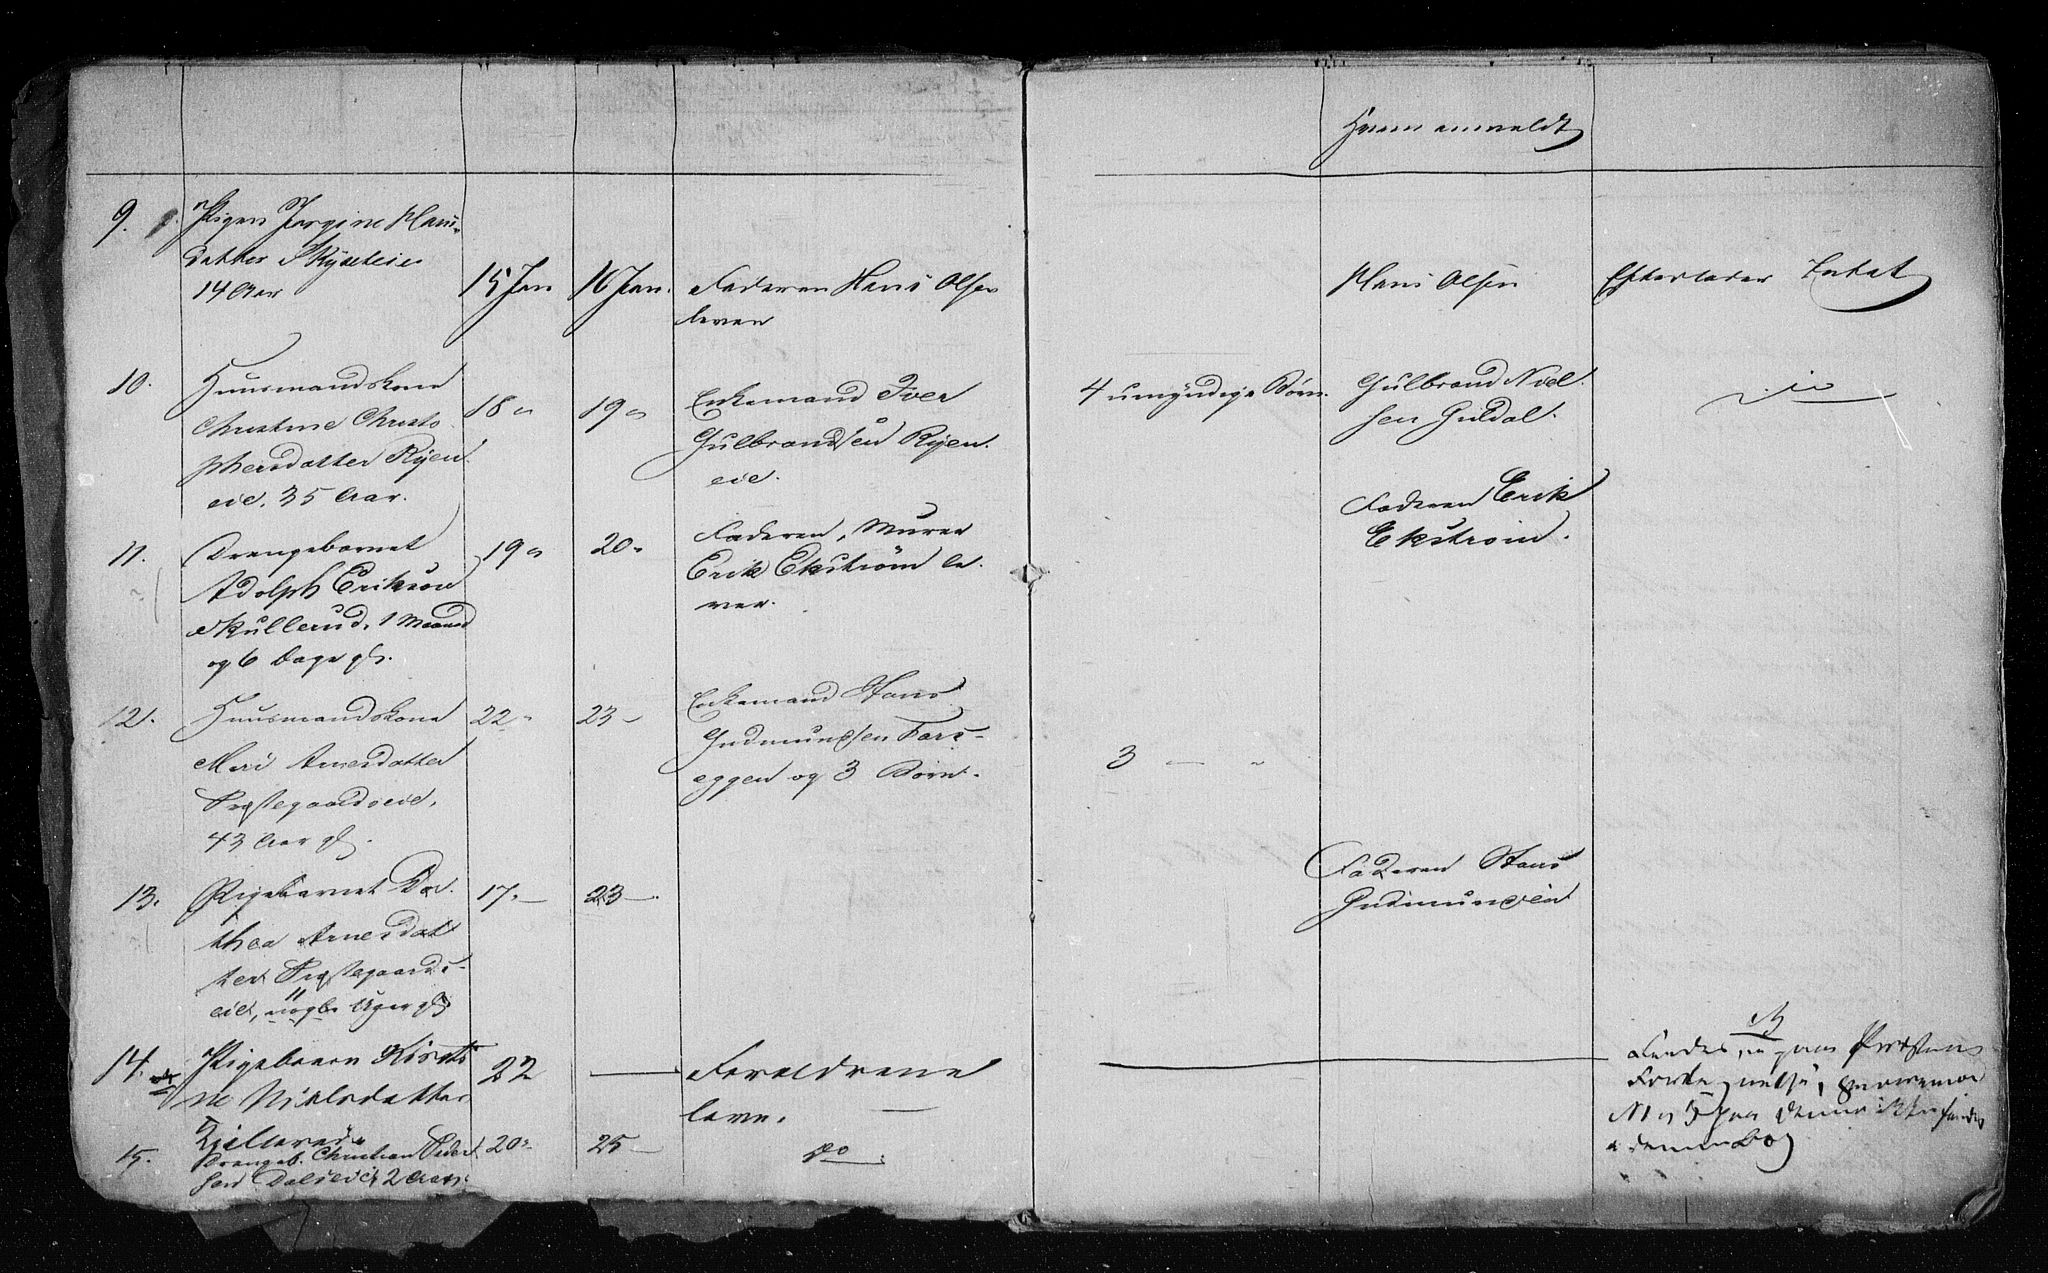 Hvem anmeldt
9. Pigen Jørgine Hans
datter Skyseteie
14 Aar
15 Jan 16 Jan. Faderen Hans Olsen
lever
Hans Olsen
Efterlader Intet
10. Huusmandskone
Christine Christo
phersdatter Ryen
eie. 35 Aar.
18 " 19 "
Enkemand Iver
Gulbrandsen Ryen
eie.
4 umyndige Børn.
Gulbrand Niel
sen Guldal.
11. Drengebarnet
Adolph Eriksøn
Skullerud, 1 Maaned
og 6 Dage gl.
19 " 20 "
Faderen, Murer
Erik Ekstrøm le
ver.
Faderen Erik
Ekstrøm.
12. Huusmandskone
Mari Arnesdatter
Præstegaardseie,
43 Aar gl.
22 " 23 —
Enkemand Hans
Gudmundsen Fors
eggen og 3 Børn.
3 — "
13. Pigebarnet Do
thea Arnesdat
ter Præstegaards
eie, 11 nogle Uger gl
17 " — 23 —
Faderen Hans
Gudmunsen
14. Pigebarn Kirsti
ne Nielsdatter
22 — Forældrene
leve.
NB
Findes paa Præstens
Fortegnelse,
No 5
denne Bog
15. Drengeb. Christian Peder
sen Dalseie 2 Aar.
20 " 25 — do